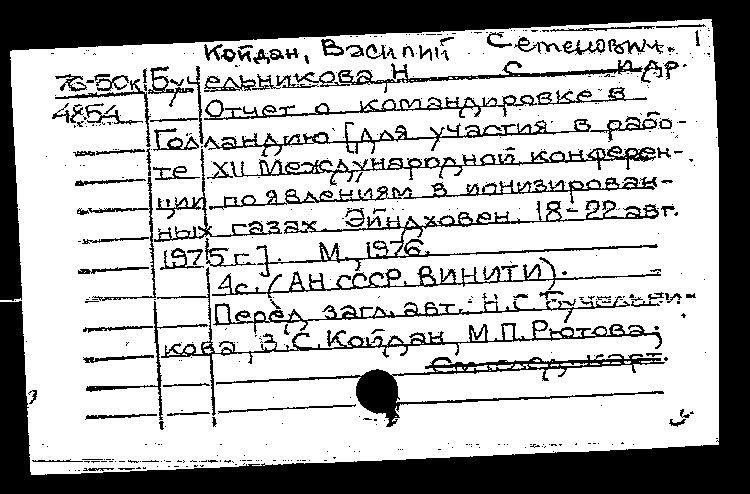 Койдан, Василий Семенович. 1
76-50к Бучельникова, Н С и др.
4854 Отчет о командировке в
Голландию [для участия в рабо-
те XII Международной конферен-
ции по явлениям в ионизирован-
ных газах. Эйндховен. 18-22 авг.
1975 г.]. М., 1976.
4с. (АН СССР. ВИНИТИ).
Перед загл. авт.: Н.С. Бучельни-
кова, В.С. Койдан, М.П. Рютова;
См. след. карт.